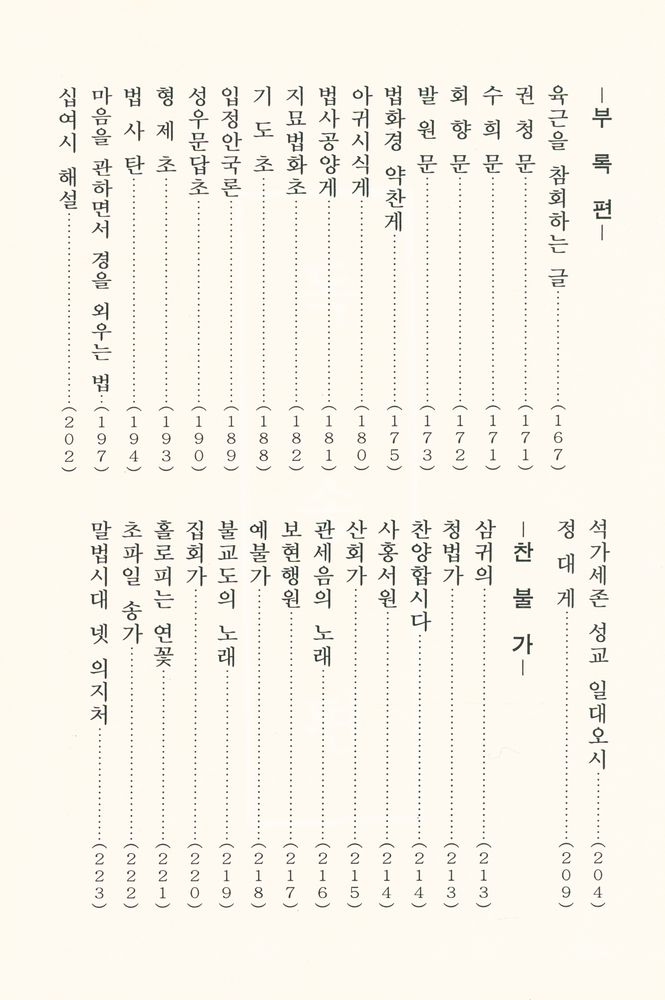 ―부 록 편―
육근을 참회하는 글 (167)
권 청 문 (171)
수 희 문 (171)
회 향 문 (172)
발 원 문 (173)
법화경 약찬게 (175)
아귀시식게 (180)
법사공양게 (181)
지묘법화초 (182)
기 도 초 (188)
입정안국론 (189)
성우문답초 (190)
형 제 초 (193)
법 사 탄 (194)
마음을 관하면서 경을 외우는 법 (197)
십여시 해설 (202)
석가세존 성교 일대오시 (204)
정 대 게 (209)
―찬 불 가―
삼귀의 (213)
청법가 (213)
찬양합시다 (214)
사홍서원 (214)
산회가 (215)
관세음의 노래 (216)
보현행원 (217)
예불가 (218)
불교도의 노래 (219)
집회가 (220)
홀로피는 연꽃 (221)
초파일 송가 (222)
말법시대 넷 의지처 (223)